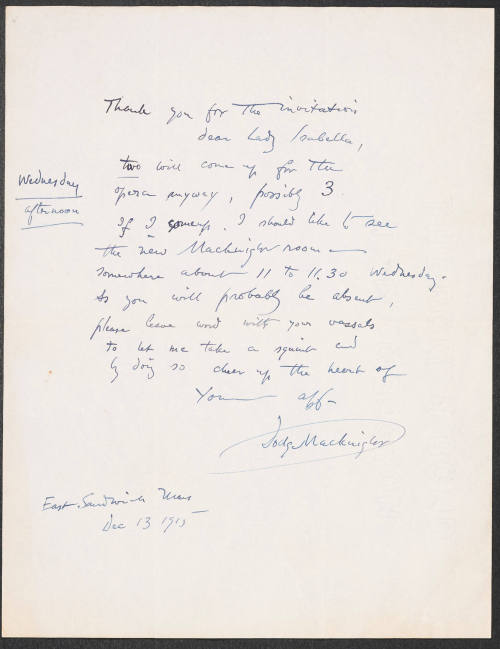 Thank you for the invitation
dear Lady Isabella,
two will come up for the
opera anyway, possibly 3
Wednesday
afternoon
If I come up. I should like to see
the new Macknight room –
somewhere about 11 to 11.30 Wednesday.
As you will probably be absent,
please leave word with your vassals
to let me take a squint and
by doing so cheer up the heart of
Your aff–
Dodge Macknight
East Sandwich Mass
Dec 13 1915